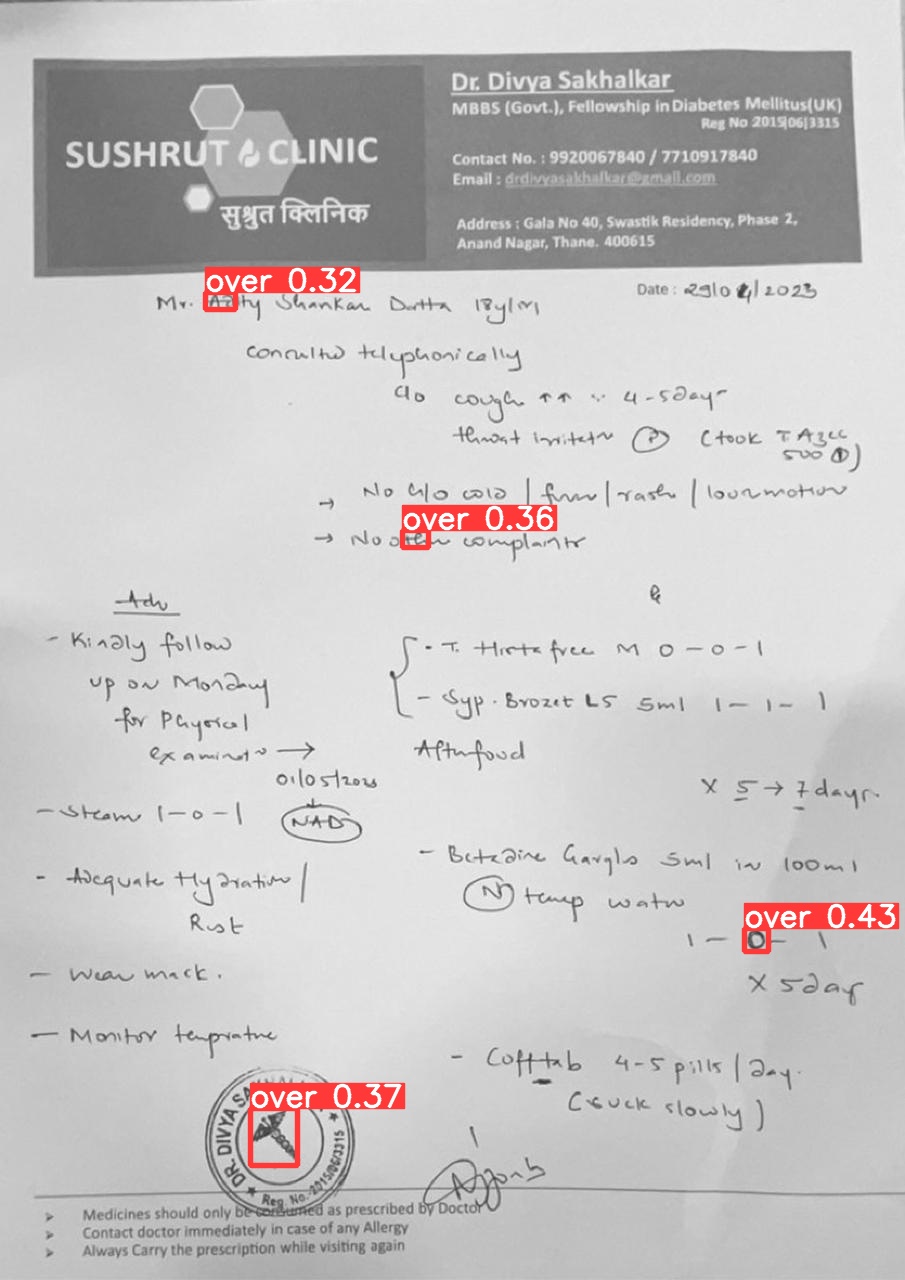 Dr. Divya Sakhalkar
MBBS (Govt.), Fellowship in Diabetes Mellitus(UK)
Reg No 2015|06|3315
SUSHRUT CLINIC
सुश्रुत क्लिनिक
Contact No. : 9920067840 / 7710917840
Email : drdivyasakhalkar@gmail.com
Address : Gala No 40, Swastik Residency, Phase 2,
Anand Nagar, Thane. 400615
over 0.32
Date : 29/04/2023
Mr. Shankar Dutta 18y/m
Consulted telephonically
c/o cough ↑↑ 4-5days
throat irritatn (P) (took T Azee
500 ①)
→ No c/o cold / fever / rash / loosemotion
over 0.36
→ No other complaints
Adv
- Kindly follow
up on Monday
for Physical
examinatn →
01/05/2023
NAD
- Steam 1-0-1
- Adequate Hydration /
Rest
- Wear mask.
- Monitor temprature
- T. Histafree M 0-0-1
- Syp. Brozet LS 5ml 1-1-1
After food
x 5 → 7 days.
- Betadine Gargles 5ml in 100ml
(N) temp water
over 0.43
1-0-1
x 5 day
- Cofftab 4-5 pills / day.
(suck slowly)
over 0.37
DR. DIVYA
Reg. No. 2015/06/3315
Medicines should only be consumed as prescribed by Doctor
Contact doctor immediately in case of any Allergy
Always Carry the prescription while visiting again